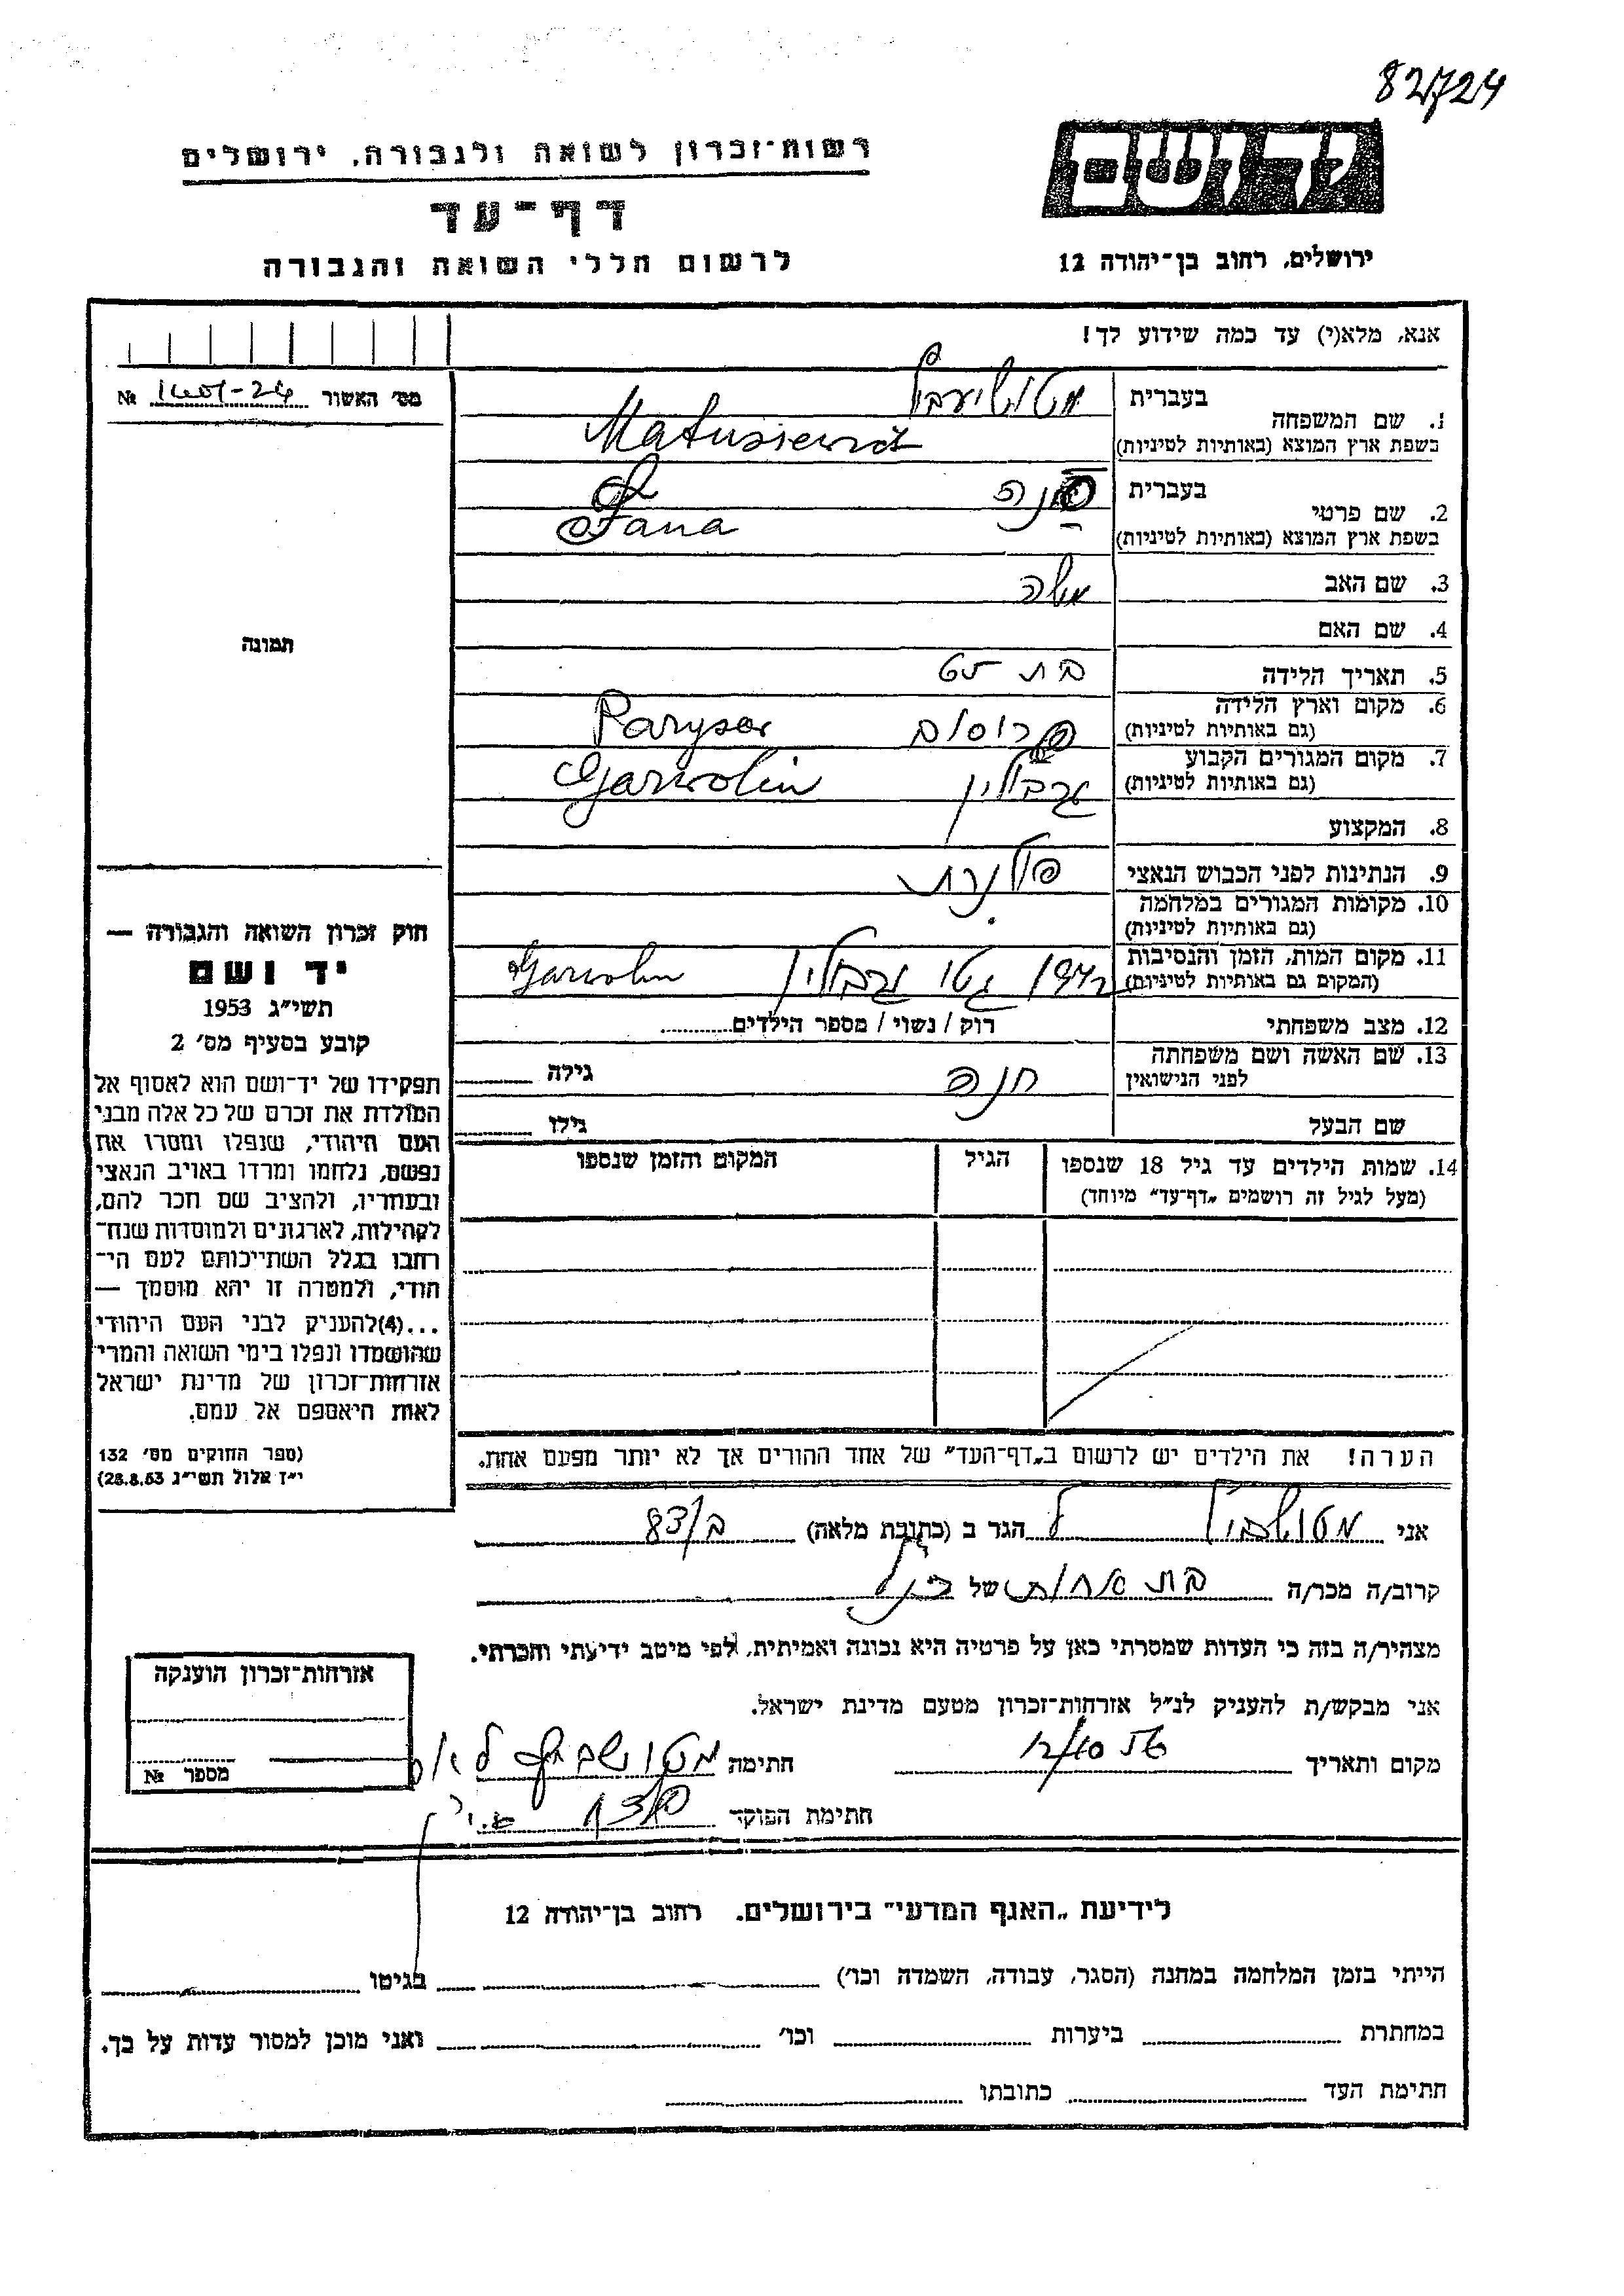 82724
רשות־זכרון לשואה ולגבורה, ירושלים
יד ושם
דף־עד
לרשום חללי השואה והגבורה
ירושלים, רחוב בן־יהודה 12
אנא, מלא(י) עד כמה שידוע לך!
מס׳ האשור №
1. שם המשפחה בעברית
בשפת ארץ המוצא (באותיות לטיניות) Matusiewicz
2. שם פרטי בעברית
בשפת ארץ המוצא (באותיות לטיניות) Fana
3. שם האב משה
4. שם האם
תמונה
5. תאריך הלידה בת
6. מקום וארץ הלידה
(גם באותיות לטיניות) Parysow
7. מקום המגורים הקבוע
(גם באותיות לטיניות) גרבולין Garwolin
8. המקצוע
9. הנתינות לפני הכבוש הנאצי פולנית
10. מקומות המגורים במלחמה
(גם באותיות לטיניות)
11. מקום המות, הזמן והנסיבות
(המקום גם באותיות לטיניות) גטו גרבולין Garwolin
12. מצב משפחתי רוק / נשוי / מספר הילדים
13. שם האשה ושם משפחתה
לפני הנישואין חנה גילה
שם הבעל גילו
14. שמות הילדים עד גיל 18 שנספו הגיל המקום והזמן שנספו
(מעל לגיל זה רושמים „דף־עד” מיוחד)
חוק זכרון השואה והגבורה —
יד ושם
תשי״ג 1953
קובע בסעיף מס׳ 2
תפקידו של יד־ושם הוא לאסוף אל
המולדת את זכרם של כל אלה מבני
העם היהודי, שנפלו ומסרו את
נפשם, נלחמו ומרדו באויב הנאצי
ובעוזריו, ולהציב שם וזכר להם,
לקהילות, לארגונים ולמוסדות שנח־
רבו בגלל השתייכותם לעם הי־
הודי, ולמטרה זו יהא מוסמך —
...(4)להעניק לבני העם היהודי
שהושמדו ונפלו בימי השואה והמרי
אזרחות־זכרון של מדינת ישראל
לאות היאספם אל עמם.
(ספר החוקים מס׳ 132
י״ז אלול תשי״ג 28.8.53)
הערה! את הילדים יש לרשום ב„דף־העד” של אחד ההורים אך לא יותר מפעם אחת.
אני הגר ב (כתובת מלאה)
קרוב/ה מכר/ה בת אחות של
מצהיר/ה בזה כי העדות שמסרתי כאן על פרטיה היא נכונה ואמיתית, לפי מיטב ידיעתי והכרתי.
אני מבקש/ת להעניק לנ״ל אזרחות־זכרון מטעם מדינת ישראל.
מקום ותאריך חתימה
חתימת הפוקד
אזרחות־זכרון הוענקה
מספר №
לידיעת „האגף המדעי” בירושלים, רחוב בן־יהודה 12
הייתי בזמן המלחמה במחנה (הסגר, עבודה, השמדה וכו׳) בגיטו
במחתרת ביערות וכו׳ ואני מוכן למסור עדות על כך.
חתימת העד כתובתו